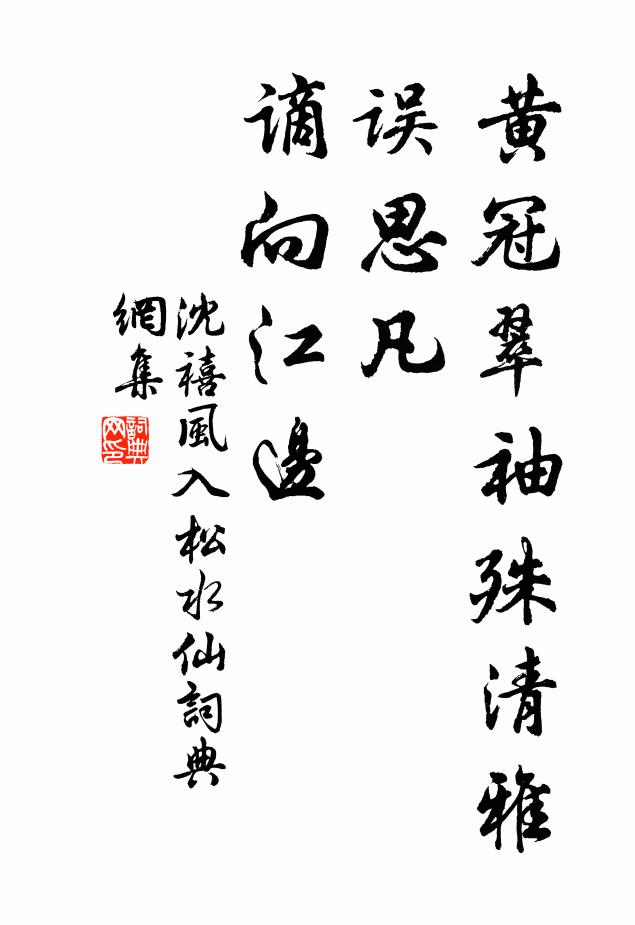 黄冠翠袖殊清雅
误思凡
谪向江邊
沈禧風入松水仙詞典
網集
詞典
网印